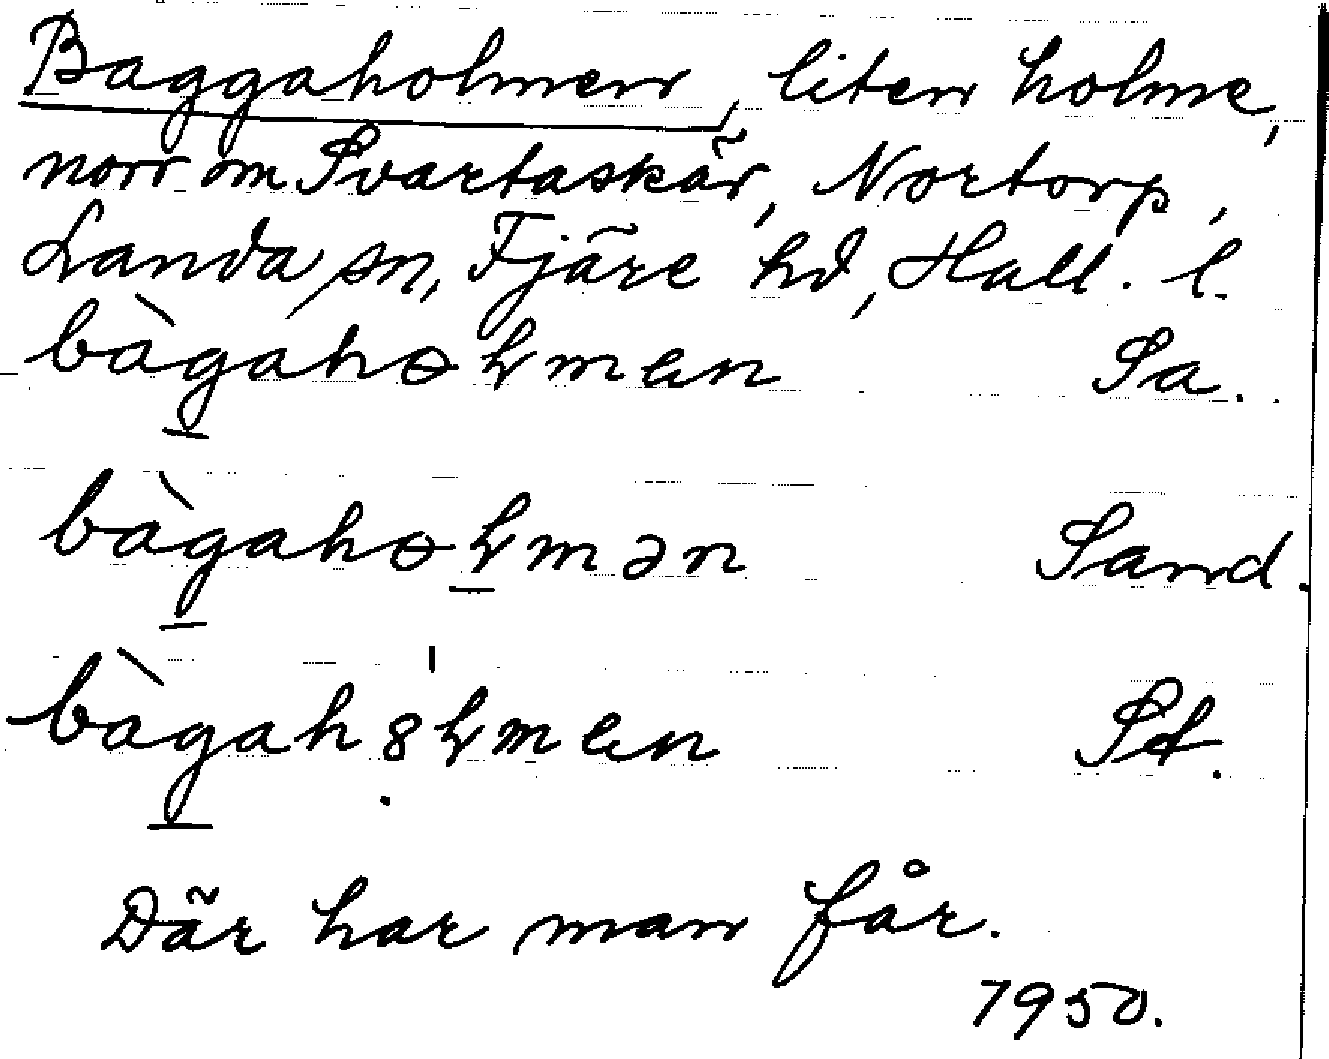 Baggaholmen, liten holme,
norr om Svartaskär, Nortorp,
Landa sn, Fjäre hd, Hall. l.
bàgahɵⱡmen Sa.
bàgahɵⱡmən Sand.
bàgah8ⱡmen St.
Där har man får.
1950.